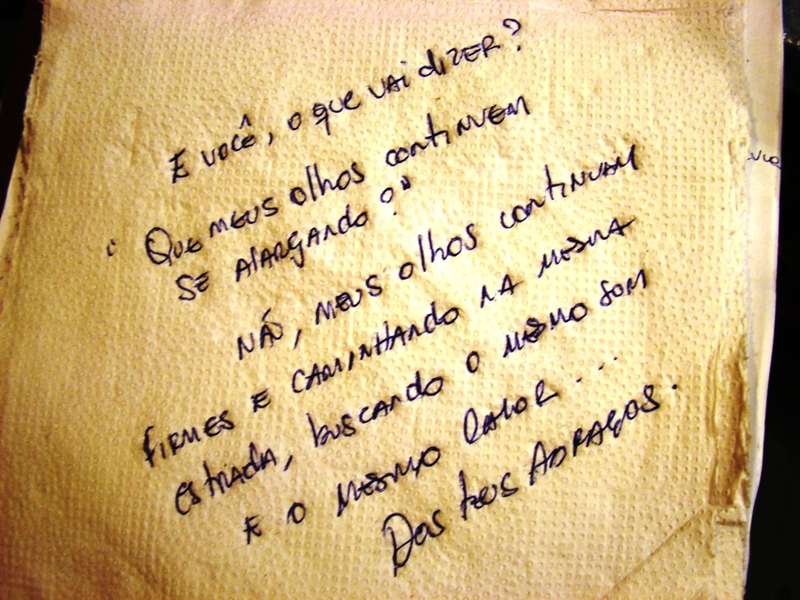 E você, o que vai dizer?
"Que meus olhos continuem
se alargando?"
Não, meus olhos continuam
firmes e caminhando na mesma
estrada, buscando o mesmo som
e o mesmo calor...
Dos teus Abraços.